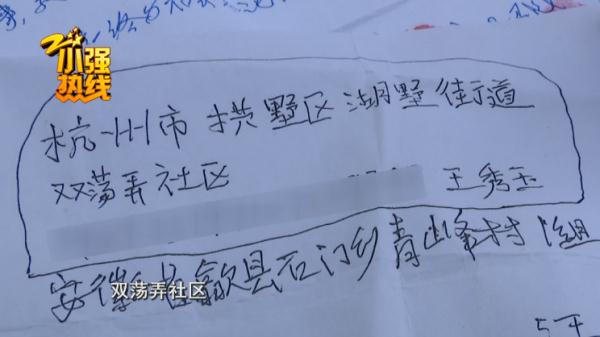 小强热线
杭州市拱墅区湖墅街道
双荡弄社区 王秀玉
安徽省歙县石门乡青峰村
双荡弄社区